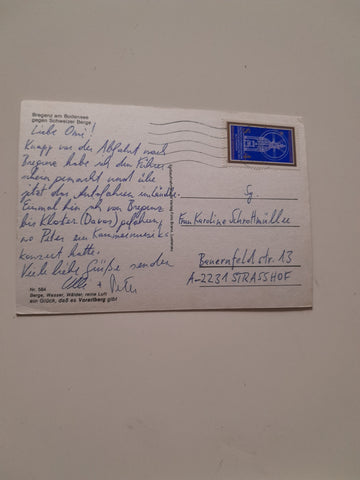 Bregenz am Bodensee
gegen Schweizer Berge
Liebe Omi!
Knapp vor der Abfahrt nach
Bregenz habe ich den Führer-
schein gemacht und übe
jetzt das Autofahren im Ländle.
Einmal bin ich von Bregenz
bis Kloster (Davos) gefahren,
wo Peter ein Kammermusik-
konzert hatte.
Viele liebe Grüße senden
Ulli + Peter
Nr. 584
Berge, Wasser, Wälder, reine Luft
ein Glück, daß es Vorarlberg gibt
Frau Karoline Schrottmüller
Bauernfeldstr. 13
A-2231 STRASSHOF